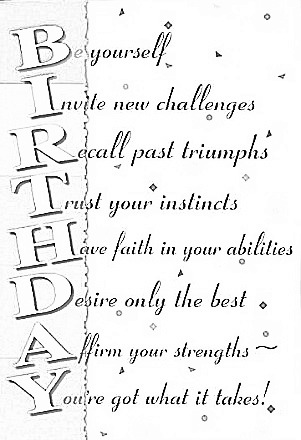 Be yourself
Invite new challenges
Recall past triumphs
Trust your instincts
Have faith in your abilities
Desire only the best
Affirm your strengths ~
You're got what it takes!